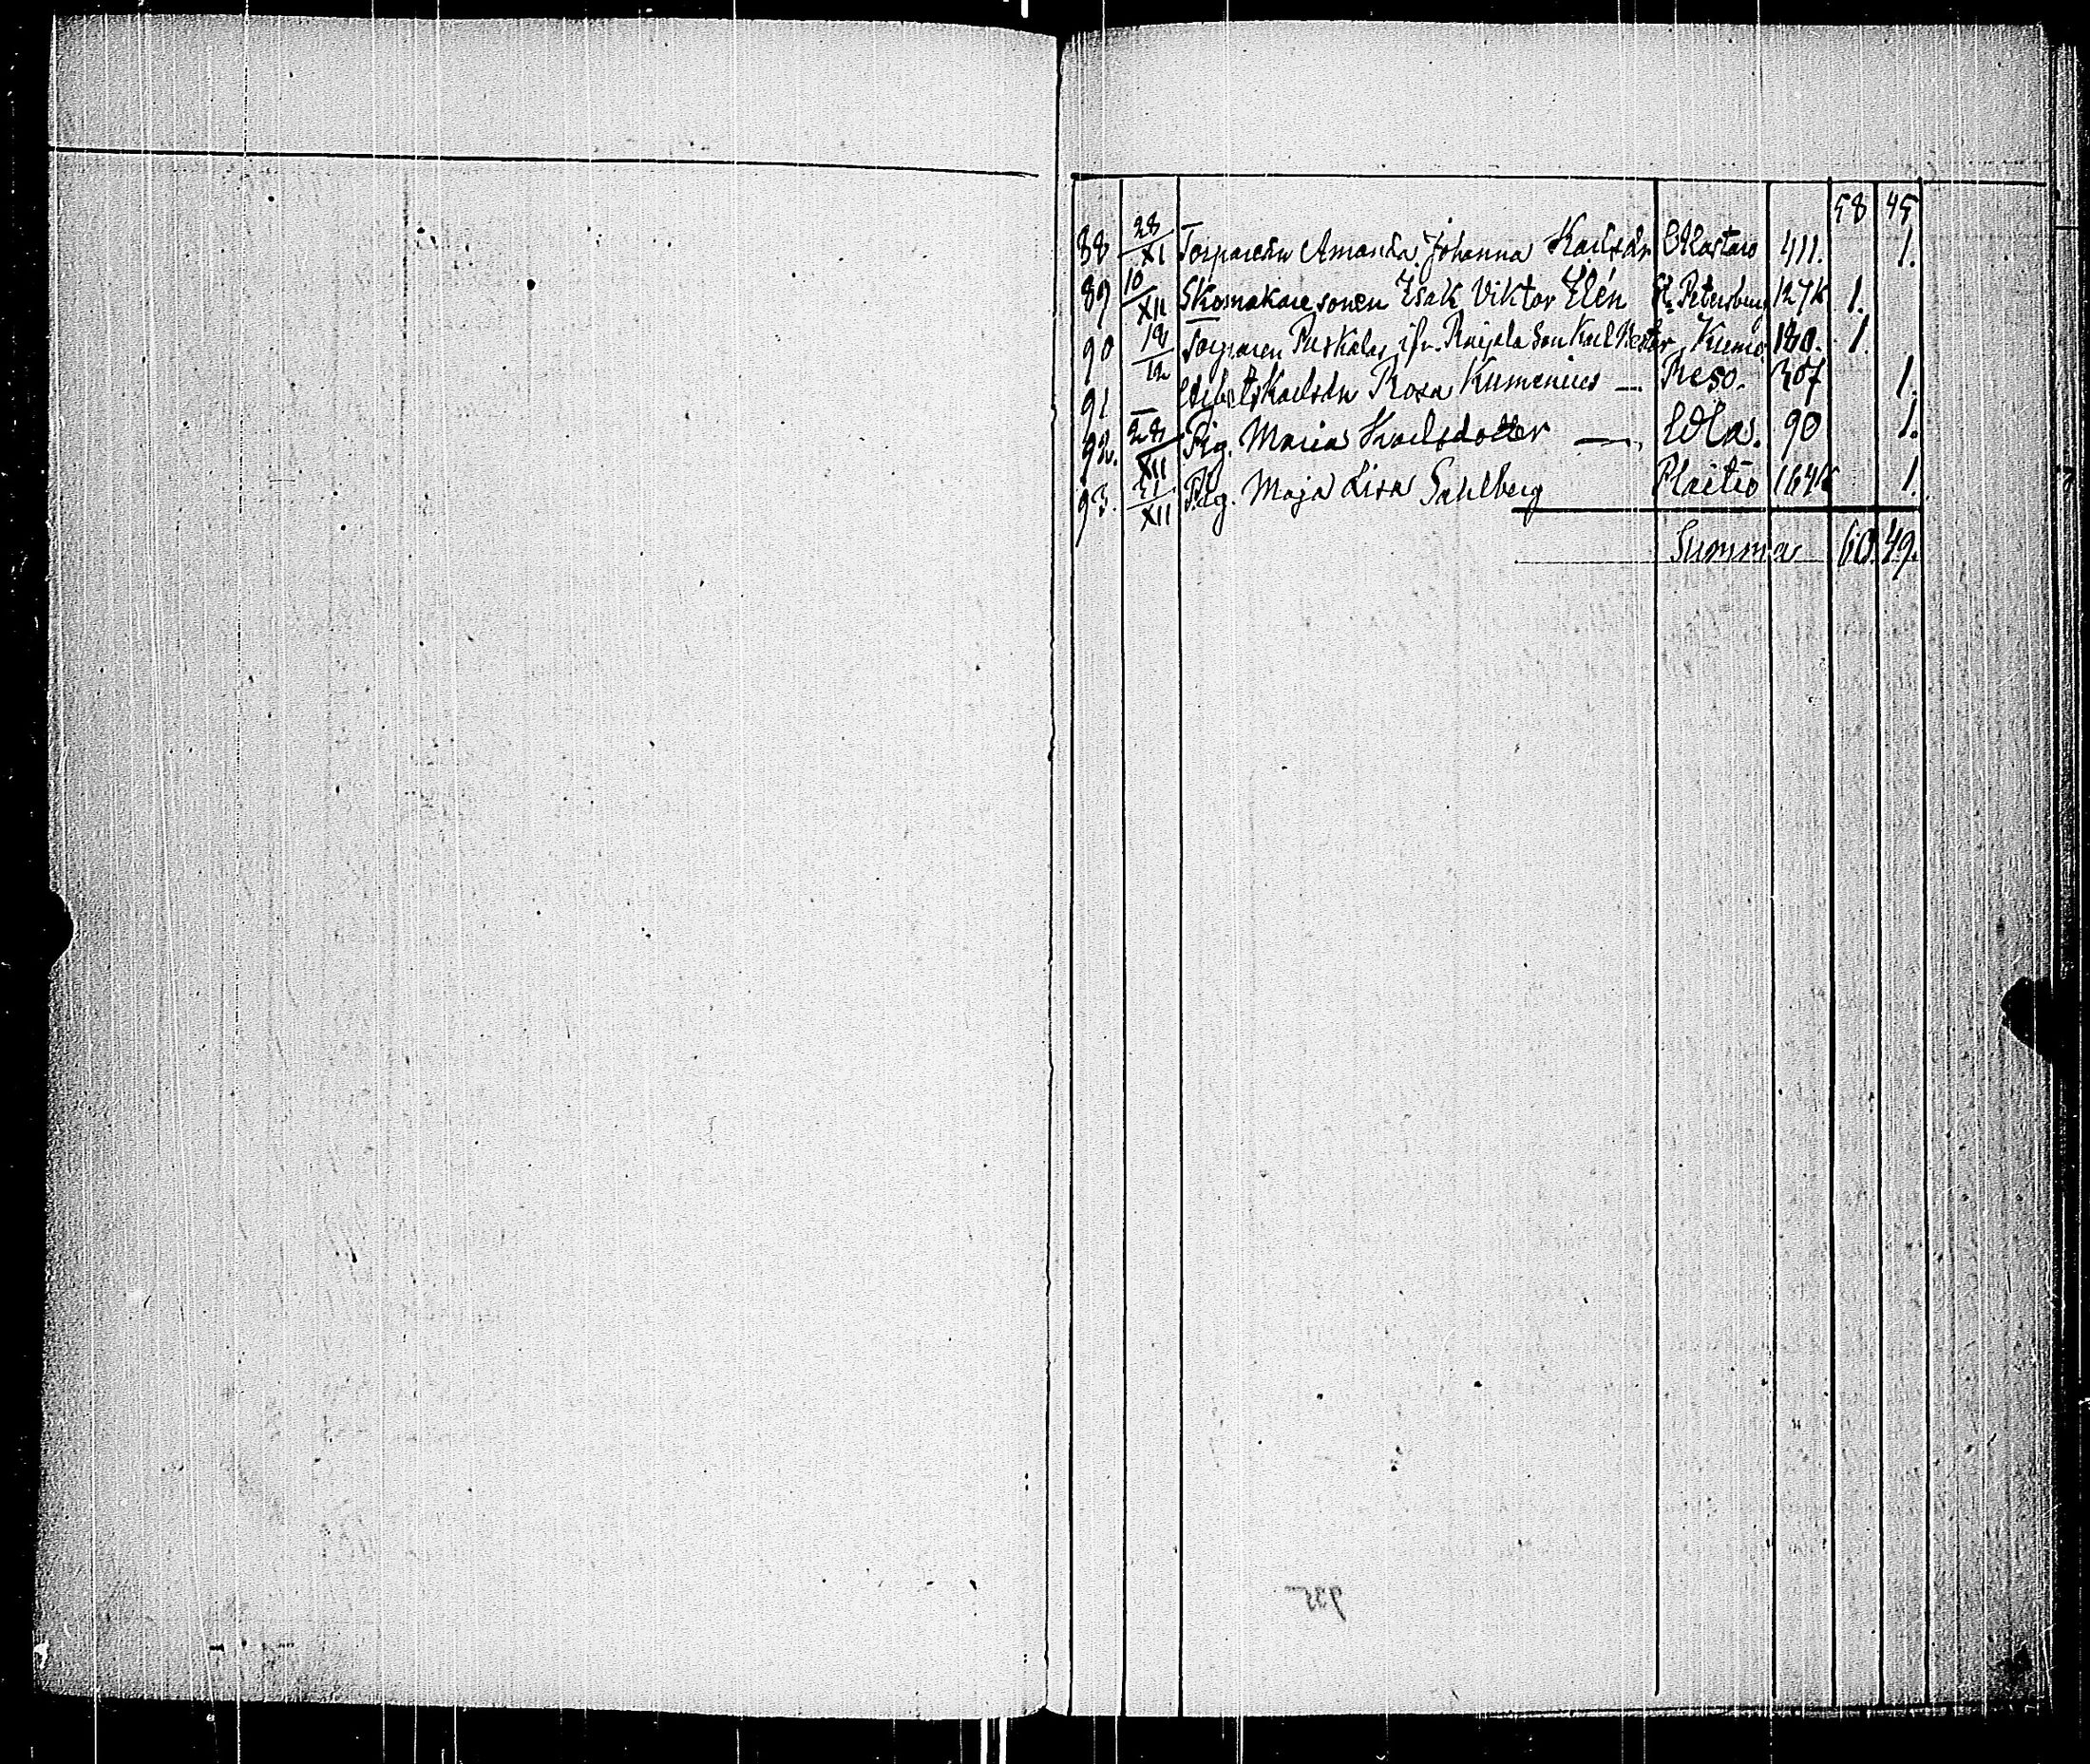 58 45
88 28/XI Torparedn Amanda Johanna Karlsdr Alastaro 411. 1.
89 10/XII Skomakaresonen Isak Viktor Elén St. Petersburg 127K 1.
90 12/12 Torparen Puskalas ifr. Raijala Son Karl Nestor Kumo 180. 1.
91 — Arbetskarlsdn Rosa Kumenius — Reso. 307 1.
92. 28/XII Pig. Maria Karlsdotter — 90 1.
93. 31/XII Pig. Maja Lisa Sahlberg 1.
Summa 60. 49.